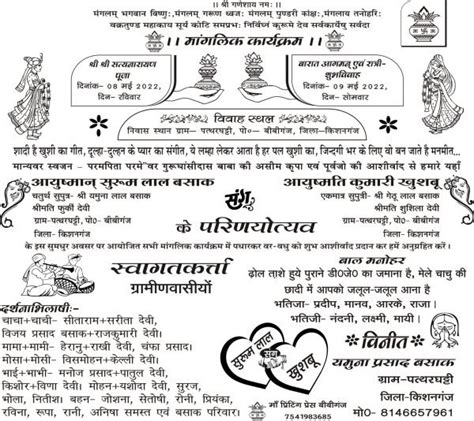 ।। श्री गणेशाय नमः ।।
मंगलम् भगवान विष्णुः,मंगलम् गरूण ध्वजः मंगलम् पुण्डरी कांक्षः,मंगलाय तनोहरिः
वक्रतुण्ड महाकाय सूर्य कोटि समप्रभः निर्विघ्नं कुरूमे देव सर्वकार्येषु सर्वदा
।। मांगलिक कार्यक्रम ।।
श्री श्री सत्यनारायण
पूजा
दिनांक- 08 मई 2022,
दिन- रविवार
बारात आगमन् एवं रात्री-
शुभविवाह
दिनांक- 09 मई 2022,
दिन- सोमवार
विवाह स्थल
निवास स्थान ग्राम- पत्थरघट्टी, पो०- बीबीगंज, जिला-किशनगंज
शादी है खुशी का गीत, दूल्हा-दुल्हन के प्यार का संगीत, ये लम्हा लेकर आता है हर पल खुशी का, जिन्दगी भर के लिए वो बन जाते है मनमीत...
मान्यवर स्वजन - परमपिता परमेश्वर गुरूघासीदास बाबा की असीम कृपा एवं पूर्वजो की आशीर्वाद से हमारे यहाँ
आयुष्मान् सुरूम लाल बसाक
चतुर्थ सुपुत्र- श्री यमुना लाल बसाक
श्रीमति फुर्की देवी
ग्राम-पत्थरघट्टी, पो० बीबीगंज
जिला- किशनगंज
संग
आयुष्मति कुमारी खुशबू
एकमात्र सुपुत्री- श्री गेठू लाल बसाक
श्रीमति सुशिला देवी
ग्राम-पत्थरघट्टी, पो०- बीबीगंज,
जिला- किशनगंज
के परिणयोत्यव
के इस सुमधुर अवसर पर आयोजित सभी मांगलिक कार्यक्रम में पधारकर वर-वधु को शुभ आशीर्वाद प्रदान कर हमें अनुग्रहित करें।
स्वागतकर्त्ता
ग्रामीणवासीयों
बाल मनोहर
ढ़ोल ताशे हुये पुराने डी0जे0 का जमाना है, मेले चाचु की
छादी में आपको जलूल-जलूल आना है
भतिजा- प्रदीप, मानव, आरके, राजा।
भतिजी- नंदनी, लक्ष्मी, मायी।
दर्शनाभिलाषीः-
चाचा+चाची- सीताराम+सरीता देवी,
विजय प्रसाद बसाक+राजकुमारी देवी।
मामा+मामी- हेरानु+राखी देवी, चंफा प्रसाद।
मोसा+मोसी- विसमोहन+केल्ली देवी।
भाई+भाभी- मनोज प्रसाद+पातुल देवी,
किशोर+विणा देवी, मोहन+यशोदा देवी, सुरज,
भोला, नितीश। बहन- जोशना, सेतोषी, रोनी, प्रियंका,
रविना, रूपा, रानी, अनिषा समस्त एवं बसाक परिवार।
सुरूम लाल
संग
खुशबू
माँ प्रिंटिंग प्रेस बीबीगंज
7541983685
विनीत
यमुना प्रसाद बसाक
ग्राम-पत्थरघट्टी
जिला-किशनगंज
मो०- 8146657961